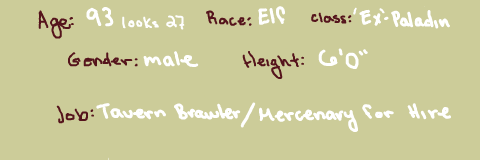 Age: 93 looks 27 Race: Elf class: 'Ex'-Paladin
Gender: male Height: 6'0"
Job: Tavern Brawler/Mercenary for Hire